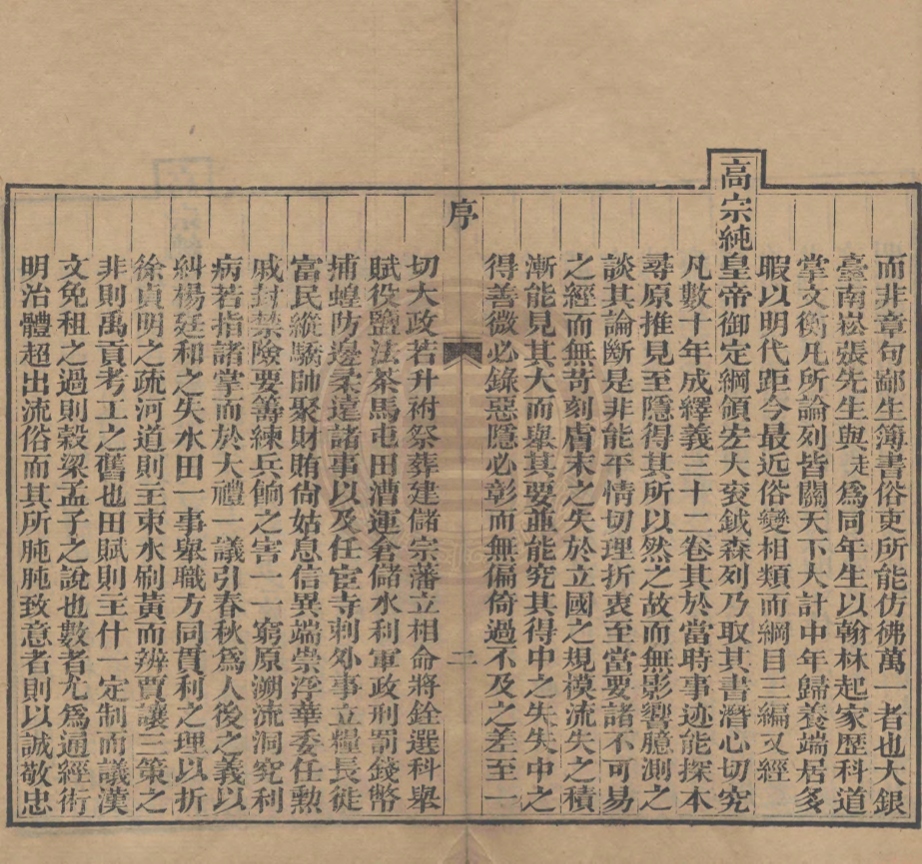 而非章句鄙生簿書俗吏所能仿彿萬一者也大銀
臺南崧張先生與走爲同年生以翰林起家歷科道
掌文衡凡所論列皆關天下大計中年歸養端居多
暇以明代距今最近俗變相類而綱目三編又經
高宗純皇帝御定綱領宏大袞鉞森列乃取其書潛心切究
凡數十年成繹義三十二卷其於當時事迹能探本
尋原推見至隱得其所以然之故而無影響臆測之
談其論斷是非能平情切理折衷至當要諸不可易
之經而無苛刻膚末之失於立國之規模流失之積
漸能見其大而舉其要並能究其得中之失失中之
得善微必錄惡隱必彰而無偏倚過不及之差至一
序
二
切大政若升祔祭葬建儲宗藩立相命將銓選科舉
賦役鹽法茶馬屯田漕運倉儲水利軍政刑罰錢幣
捕蝗防邊柔遠諸事以及任宦寺刺外事立糧長徙
富民縱驕帥聚財賄尙姑息信異端崇浮華委任勲
戚封禁險要籌練兵餉之害一一窮原溯流洞究利
病若指諸掌而於大禮一議引春秋爲人後之義以
糾楊廷和之失水田一事舉職方同貫利之理以折
徐貞明之疏河道則主束水刷黃而辨賈讓三策之
非則禹貢考工之舊也田賦則主什一定制而議漢
文免租之過則穀梁孟子之說也數者尤爲通經術
明治體超出流俗而其所肫肫致意者則以誠敬忠